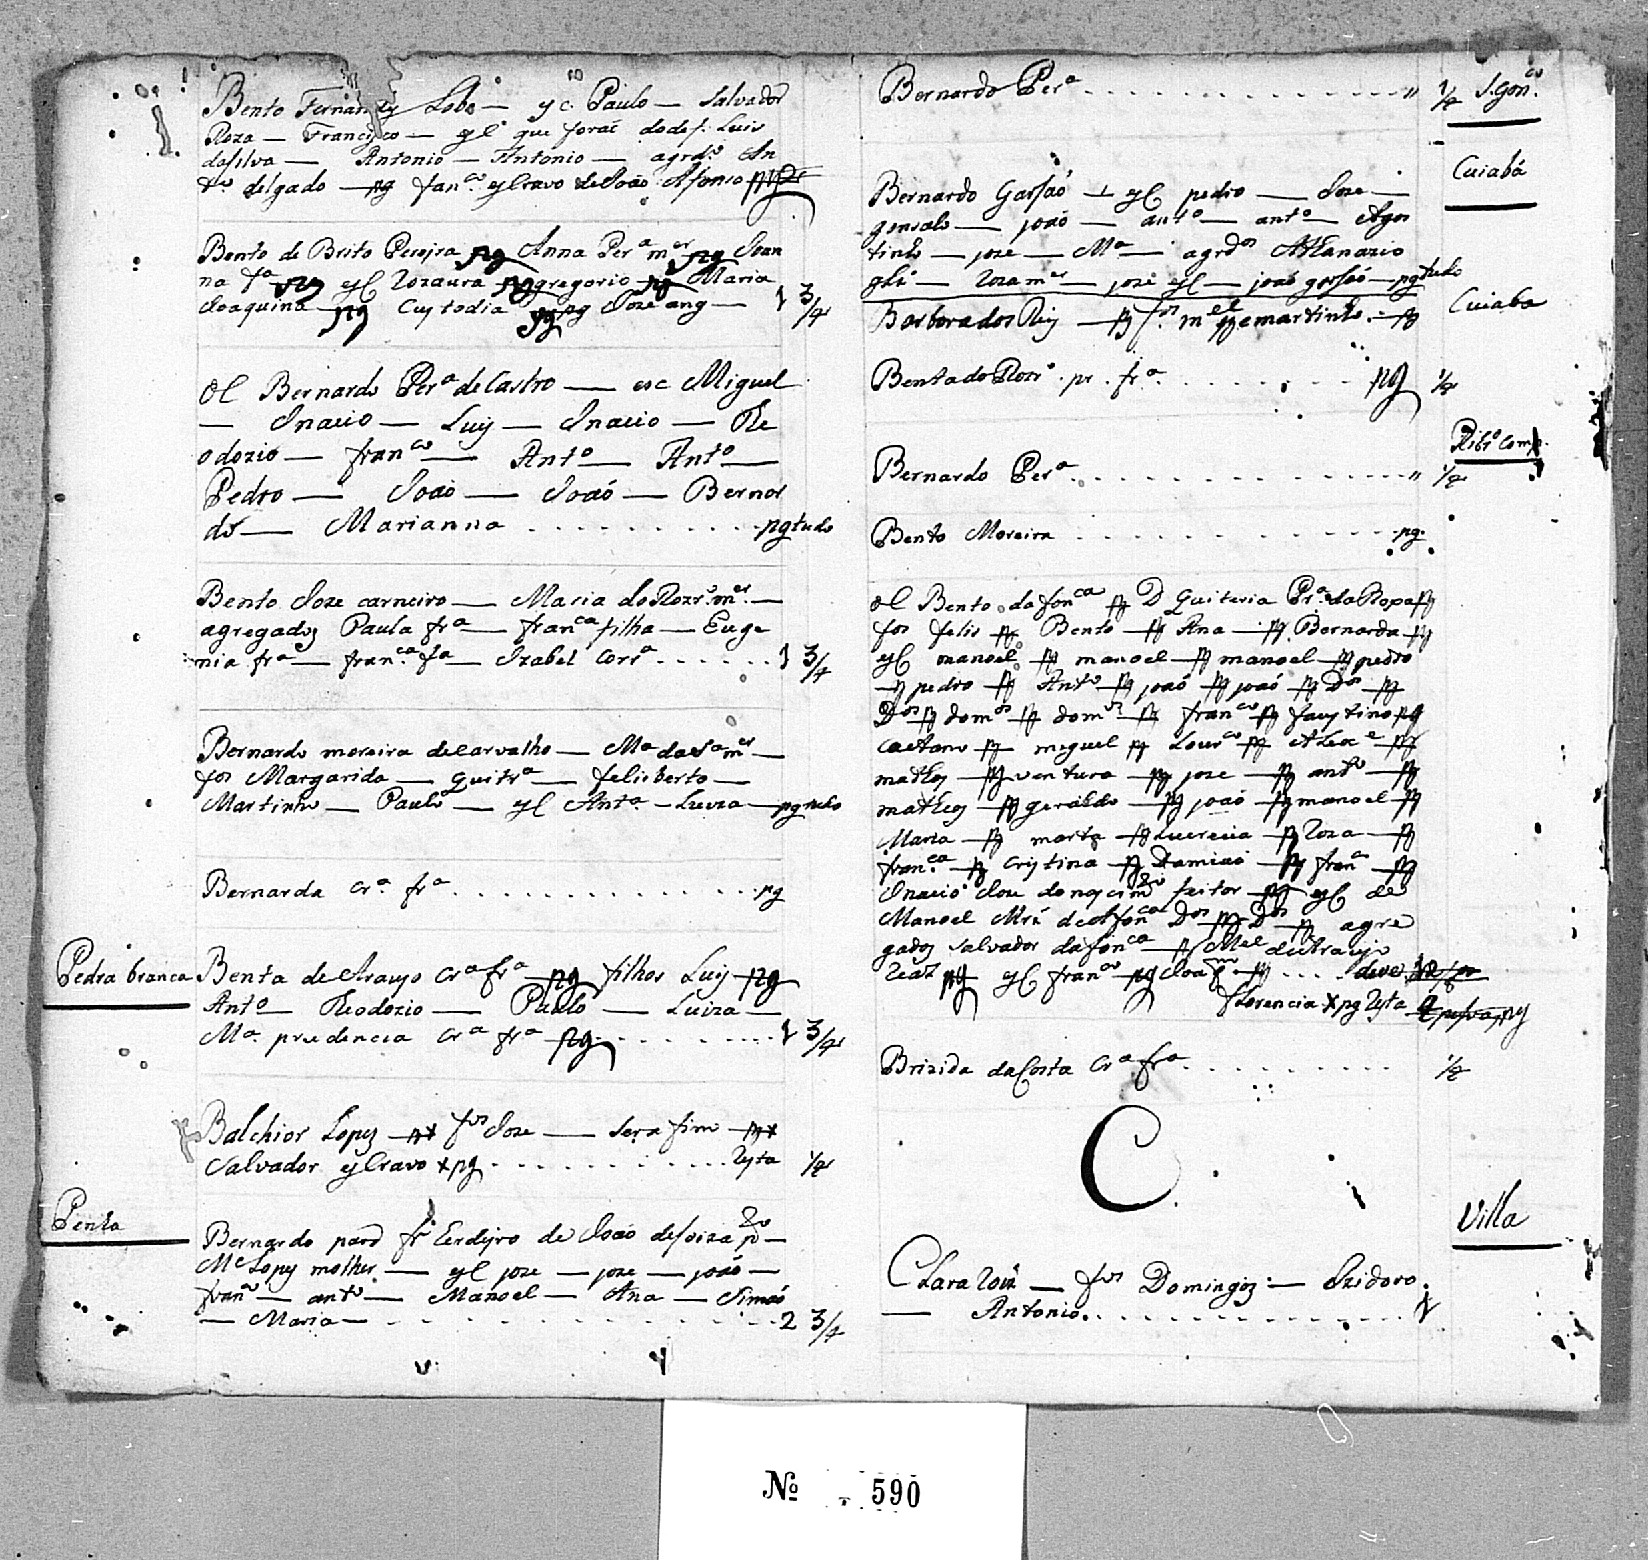 Bento Fernandez Lobo — yc Paulo — Salvador
Roza — Francisco — yl que foraõ dodef: Luis
dasilva — Antonio — Antonio — agrdº An
tº delgado — pg franco yCravo de Joaõ Afonso
Bento de Brito Pereyra pg Anna Perª mer pg Joan
na fª pg yl Rozaura pg gregorio pg Maria
Joaquina pg Custodia pg pg Joze ang — 1 3/4
Ol Bernardo Perª de Castro — esc Miguel
— Inacio — Luis — Inacio — The
odozio — franco — Antº — Antº —
Pedro — Joaõ — Joaõ — Bernar
do — Marianna . . . . . . . . . . pg tudo
Bento Joze carneiro — Maria do Rozrº mer —
agregados Paula frª — franca filha — Euge
nia frª — franca fª — Izabel Corrª . . . . . . 1 3/4
Bernardo moreira de Carvalho — Mª da Sª mer —
fos Margarida — quitrª — felisberto —
Martinho — Paulo — yl Antª — Luiza — pg tudo
Bernarda crª frª . . . . . . . . . . . . . pg
Pedra branca
Benta de Araujo Crª frª pg filhos Luis pg
Antº — Theodozio — Paulo — Luiza —
Mª prudencia Crª frª pg . . . . . . . . . 1 3/4
Balchior Lopez pg fos Joze — Serafim pg
Salvador yCravo x pg . . . . . . . . . Ryta 1/2
Penha
Bernardo pard fr Erdeyro de Joaõ de Soiza
Mc Lopes molher — yl joze — joze — joaõ —
franco — antº — Manoel — Ana — Simaõ
— Maria — . . . . . . . . . . . . . 2 3/4
Bernardo Perª . . . . . . . . . . . . . . " 1/2 S. Gonco
Cuiabá
Bernardo Garsaõ — yl pedro — Joze —
gonsalo — joaõ — antº — antº — Agos
tinho — joze — Mª — agrdos Athanazio
glz — Roza mer — joze yl — joaõ garsaõ — pg tudo
Cuiaba
Barbora dos Reis — pg fos mel pg e martinho — pg
Benta do Rozrº pr. frª . . . . . . . . . pg 1/2
Ribrº Comp.
Bernardo Perª . . . . . . . . . . . . . . " 1/2
Bento Moreira . . . . . . . . . . . . pg.
Ol Bento da fonca pg D Quiteria Prª da Ropa pg
fos felis pg Bento pg Ana pg Bernarda pg
yl manoel pg manoel pg manoel pg pedro
pg pedro pg Antº pg joaõ pg joaõ pg Dos pg
Dos pg domos pg domos pg franco pg faustino pg
Caetano pg miguel pg Lourco pg Alexe pg
matheos pg ventura pg joze pg antº pg
matheos pg geraldo pg joaõ pg manoel pg
Maria pg marta pg Lucrecia pg Roza pg
franca pg Cristina pg Damiaõ pg franca pg
Inacio Joze do nascimto feitor pg yl de
Manoel Mrz da fonca Dos pg Dos pg agre
gados Salvador da fonca pg Mel de Araujo
pg yl franco pg Joaqm pg . . . . deve
florencia x pg Ryta
Brizida da Costa Crª frª . . . . . . . . . . 1/2
C
Villa
Clara — fos Domingos — Izidoro
— Antonio . . . . . . . . . . . . . . . 1
Nº 590